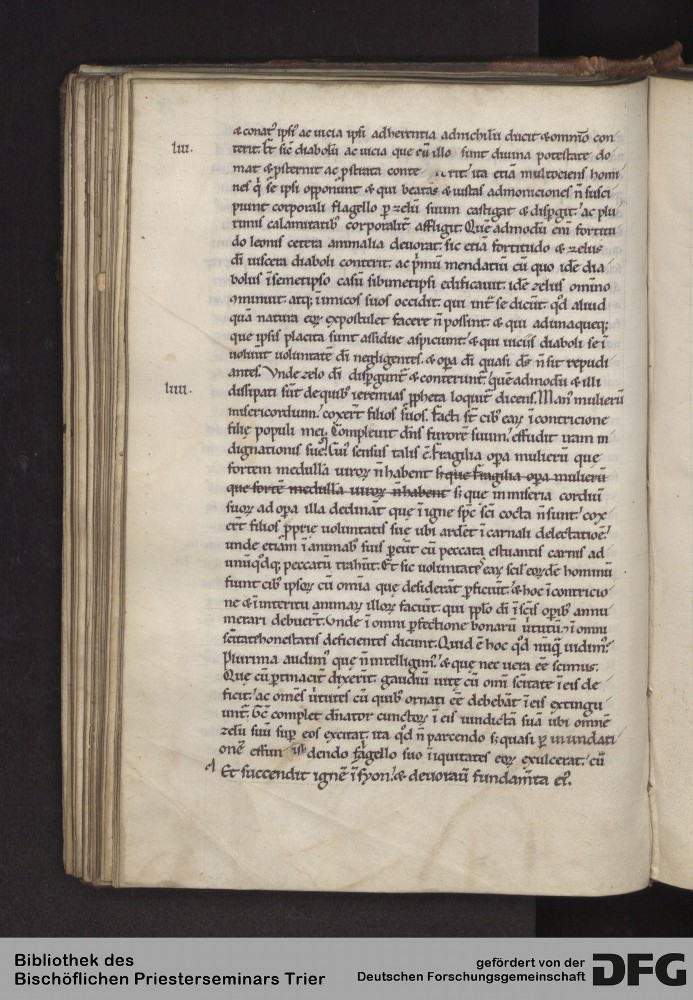 & conat' ipsi' ac uicia ipsi adherentia adnichilũ ducit & om̃ino con
liii. terit. Et sic diabolũ ac uicia que cũ illo sunt diuina potestate do
mat & p̃sternit ac p̃strata conte rit: ita etiã multociens homi
nes q̃ se ipsi opponunt & qui beatas & iustas admoniciones ñ susci
piunt corporali flagello p zelũ suum castigat & disp̃git. ac plu
rimis calamitatib' corporalit̃ affligit. Quẽ admodũ eni fortitu
do leonis cetera animalia deuorat. sic etiã fortitudo & zelus
di uiscera diaboli conterit. ac p̃mũ mendatiũ cũ quo idẽ dia
bolus i semetipso casũ sibimetipsi edificauit. idẽ zelus omĩno
ꝯminuit. atq; inimicos suos occidit. qui int̃ se dicũt. qd aliud
quã natura eoꝝ expostulet facere ñ possint. & qui adunaqueq;
que ipsis placita sunt assidue aspiciunt. & qui uiciis diaboli se i
uoluũt uoluntatẽ di negligentes. & opa di quasi ds ñ sit repudi
antes. Vnde zelo di disp̃gunt̃ & conterunt̃. quẽ admodũ & illi
liiii. dissipati sũt de quib' ieremias p̃pheta loquit̃ dicens. Man' mulierũ
misericordium coxert̃ filios suos. facti st̃ cib' eaꝝ i contricione
filie populi mei. Compleuit dñs furorẽ suum. effudit iram in
dignationis sue. Cui' sensus talis ẽ. Fragilia opa mulierũ que
fortem medullã uiroꝝ ñ habent s; que fragilia opa mulierũ
que fortẽ medullã uiroꝝ ñ habent s; que in miseria cordiũ
suoꝝ ad opa illa declinãt que i igne spc sci cocta ñ sunt. cox
ert̃ filios p̃prie uoluntatis sue ubi ardẽt i carnali delectatioẽ.
unde etiãm i animab' suis pcũt cũ peccata estuantis carnis ad
unũq̃dq; peccatũ trahũt. Et sic uoluntates eaꝝ scil' eoꝝdẽ hominũ
fiunt cib' ipsoꝝ cũ omnia que desiderãt p̃ficiũt. & hoc i contricio
ne & i interitu animaꝝ illoꝝ faciũt. qui pplo di i scis opib' annu
merari debuert̃. Vnde i omni p̃fectione bonarũ uirtutũ & i omni
scitate honestatis deficientes dicunt. Quid ẽ hoc qd nũq̃ uidim'?
Plurima audim' que ñ intelligim'. & que nec uera eẽ scimus.
Que cũ p̃tinacit̃ dixerit̃. gaudiũ uite cũ omi scitate i eis de
ficit. ac omẽs uirtutes cũ quib' ornati eẽ debebãt i eis extingu
unt̃. Et complet dñator cunctoꝝ i eis uindictã suã ubi omnẽ
zelũ suũ sup eos excitat. ita qd ñ parcendo s; quasi p inundati
onẽ effun dendo flagello suo iniquitates eoꝝ exulcerat. cũ
Et succendit ignẽ i syon. & deuorauit fundam̃ta ei'.
Bibliothek des
Bischöflichen Priesterseminars Trier
gefördert von der
Deutschen Forschungsgemeinschaft
DFG